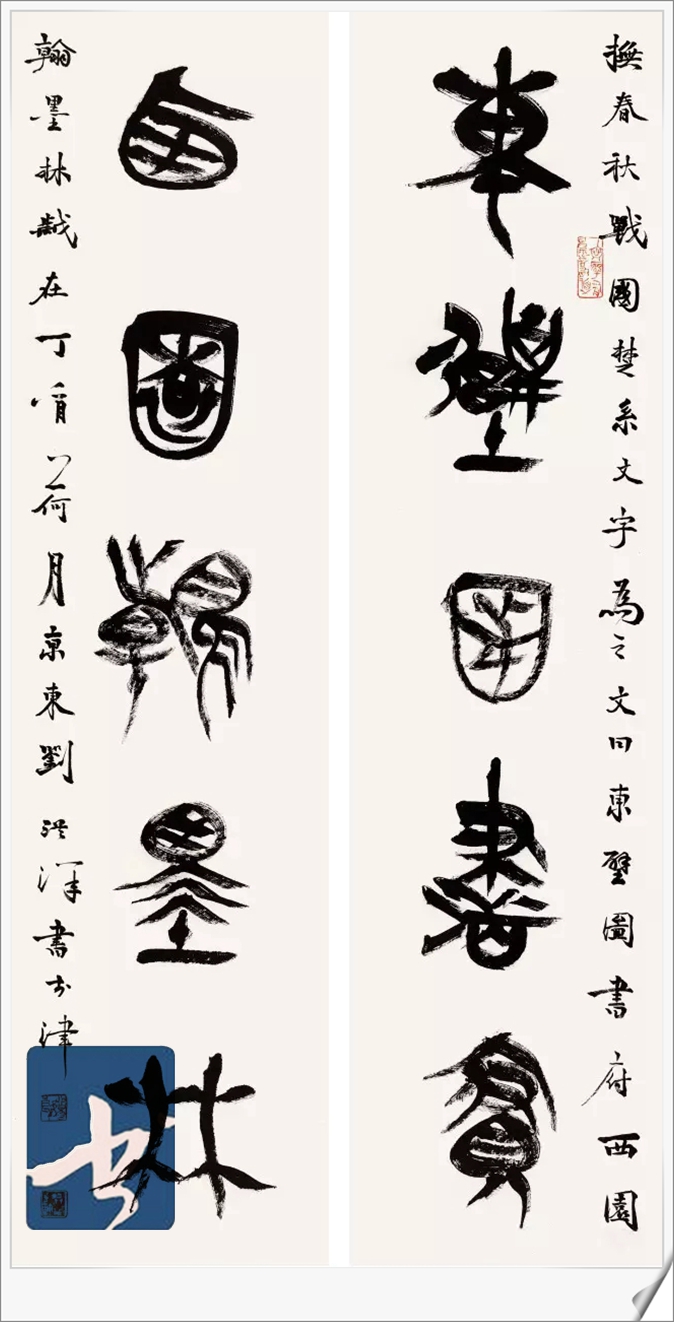 撫春秋戰國楚系文字為之文曰東壁圖書府西園
東壁圖書府
西園翰墨林
翰墨林歲在丁酉之荷月京東劉洪洋書於津